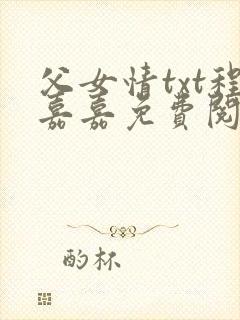 父女情txt程
嘉嘉免费阅
酌杯